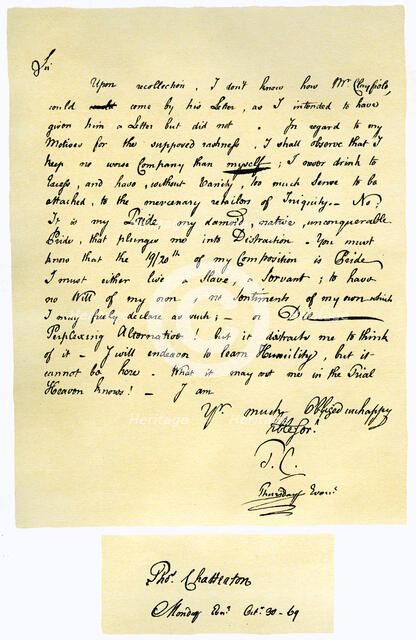 Sir
Upon recollection, I don't know how Mr. Clayfield,
could come by his Letter, as I intended to have
given him a Letter but did not. In regard to my
Motives for the supposed rashness, I shall observe that I
keep no worse Company than myself; I never drink to
Excess, and have, without Vanity, too much Sense to be
attached, to the mercenary retailers of Iniquity. — No!
It is my Pride, my damn'd, native, unconquerable
Pride, that plunges me into Distraction. You must
know that the 19/20th of my Composition is Pride
I must either live a Slave, a Servant; to have
no Will of my own, no Sentiments of my own which
I may freely declare as such; — or Die
Perplexing Alternative! but it distracts me to think
of it — I will endeavor to learn Humility, but it
cannot be here. What it may cost me in the Trial
Heaven knows! — I am
Yr. much Obliged unhappy
Hble Ser.t
T. C.
Thursday Even:
Thos. Chatterton
Monday Octr. 30 - 69
Heritage